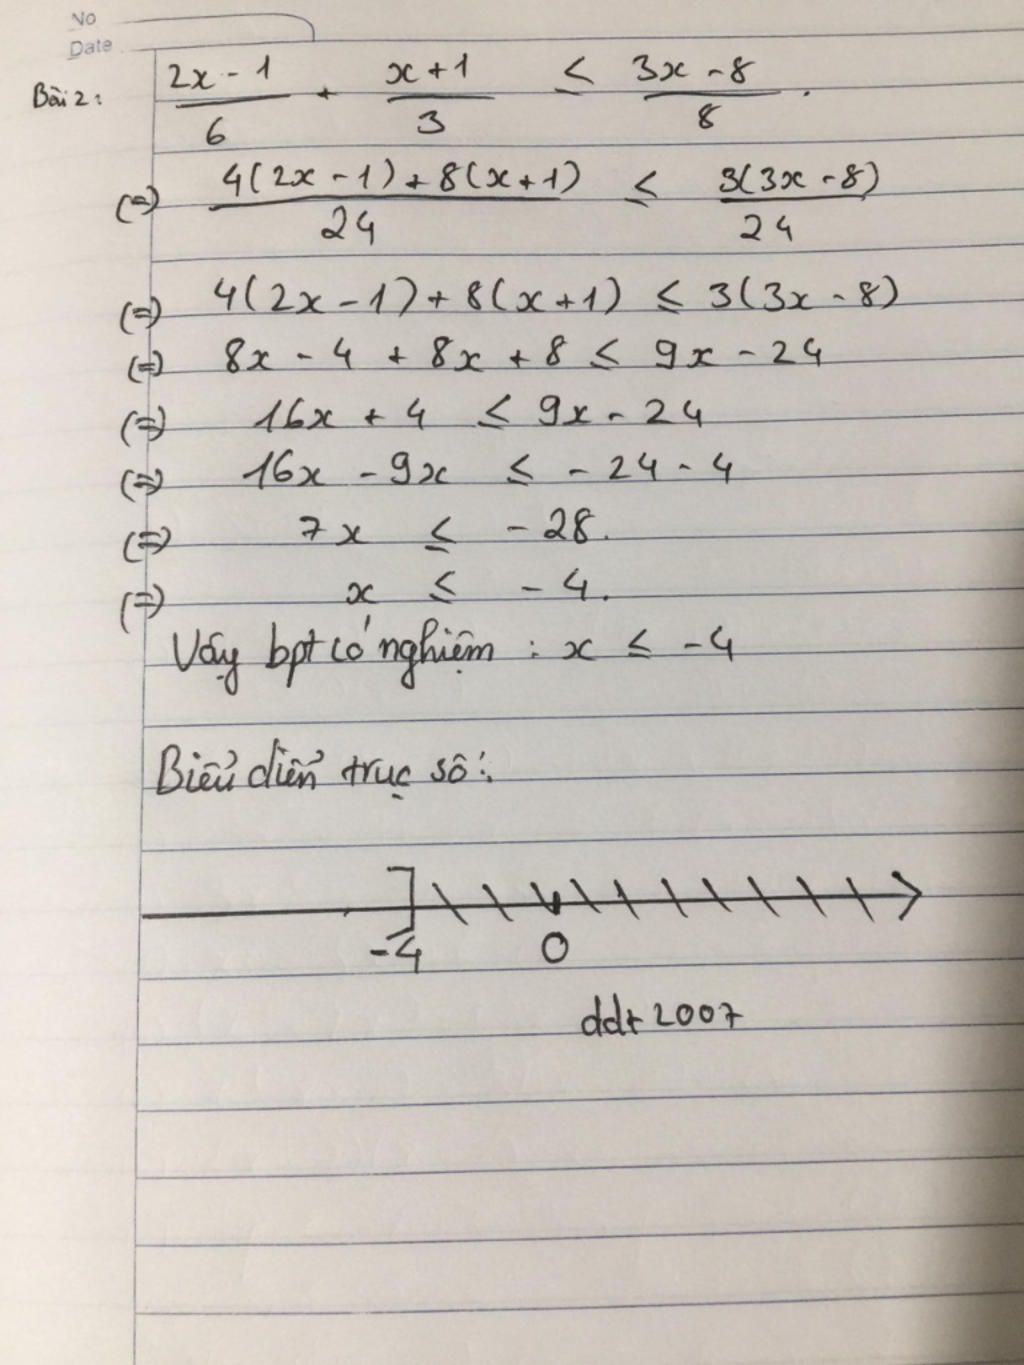 No
Date
Bài 2: (2x - 1)/6 + (x + 1)/3 ≤ (3x - 8)/8 .
(=) (4(2x - 1) + 8(x + 1))/24 ≤ (3(3x - 8))/24
(=) 4(2x - 1) + 8(x + 1) ≤ 3(3x - 8)
(=) 8x - 4 + 8x + 8 ≤ 9x - 24
(=) 16x + 4 ≤ 9x - 24
(=) 16x - 9x ≤ - 24 - 4
(=) 7x ≤ - 28.
(=) x ≤ - 4.
Vậy bpt có nghiệm : x ≤ -4
Biểu diễn trục số :
-4 0
ddt 2007